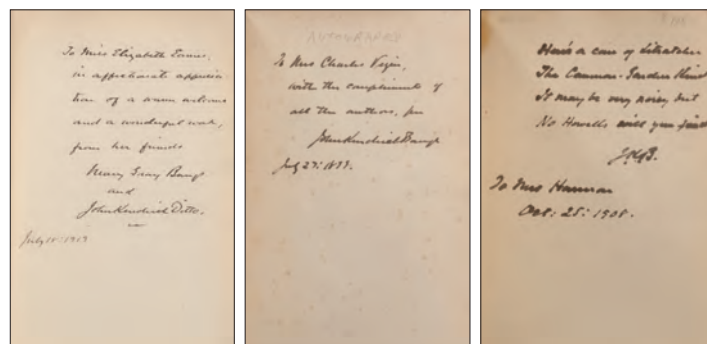 To Miss Elizabeth
in affectionate apprecia-
tion of a warm welcome
and a wonderful week,
from her friends
Mary Gray Bangs
and
John Kendrick Ditto.
July 1919
AUTOGRAPHED
To Mrs Charles
with the compliments of
all the authors, per
John Kendrick Bangs
July 27: 1899.
Here's a case of Literature
The Common-Garden Kind
It may be very noisy, but
No Howells will you find
J.K.B.
To Mrs Harmon
Oct: 25: 1908.